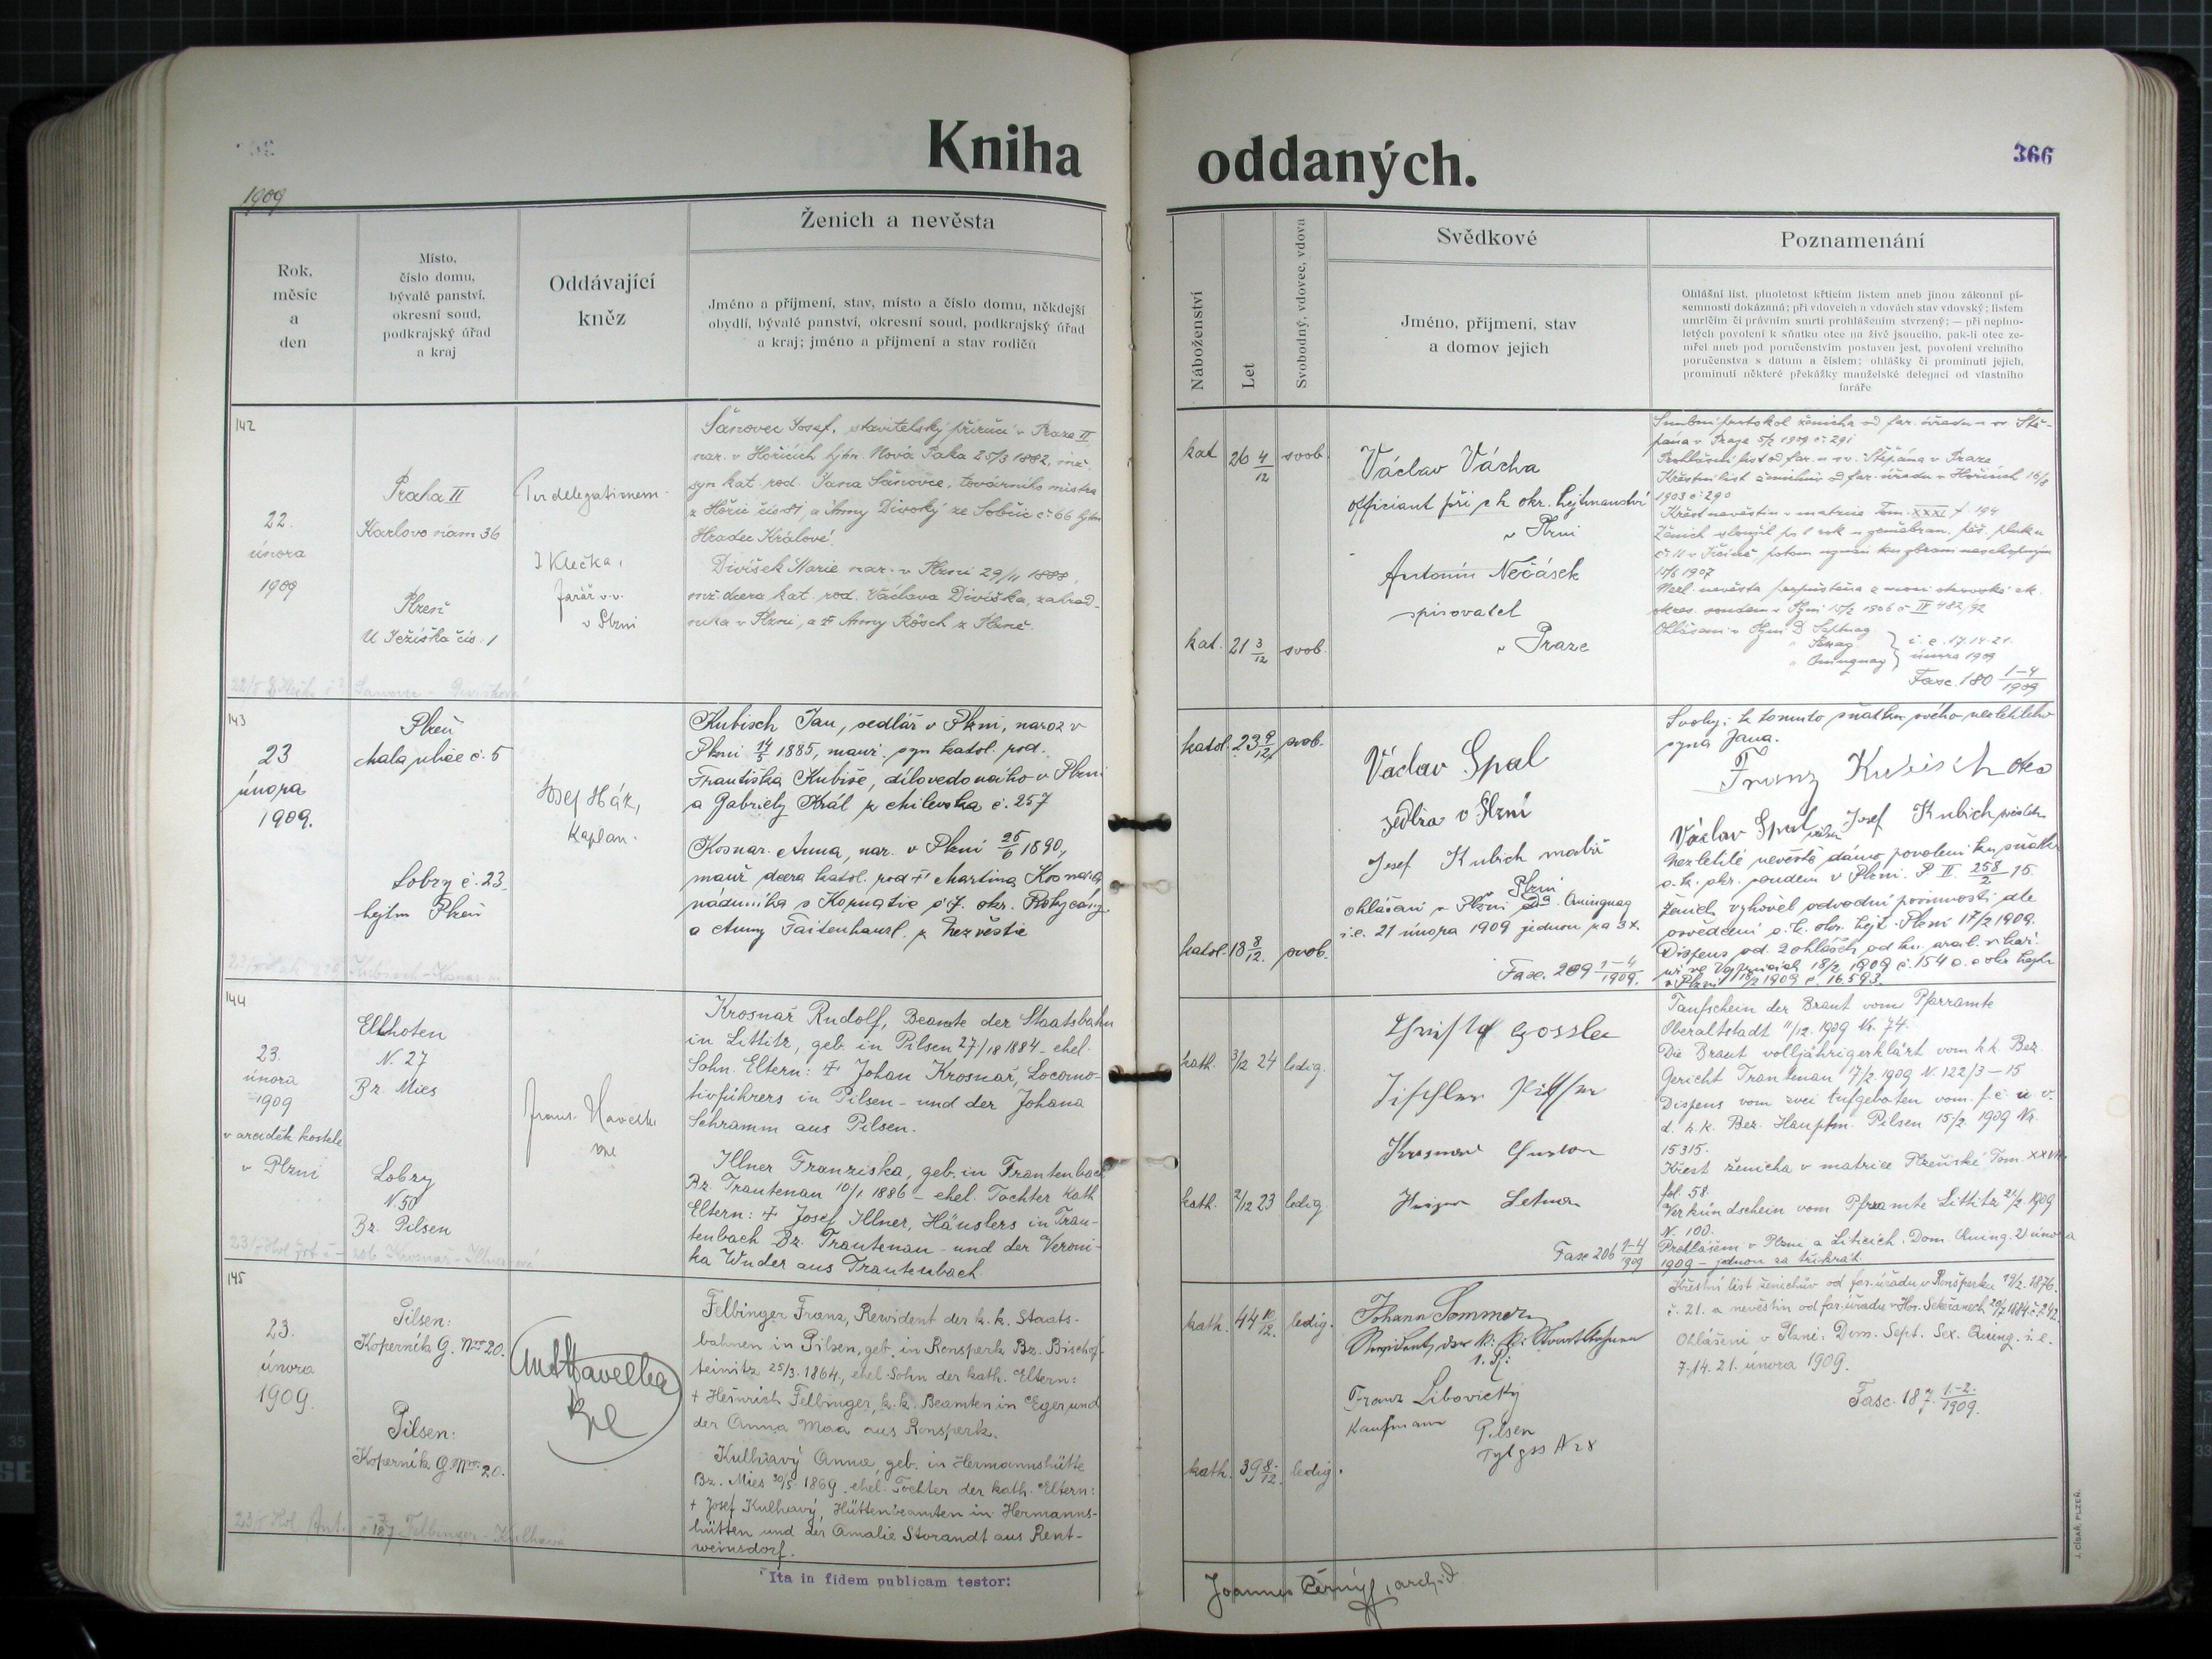 Kniha oddaných.
366
1909
Rok,
měsíc
a
den
Místo,
číslo domu,
bývalé panství,
okresní soud,
podkrajský úřad
a kraj
Oddávající
kněz
Ženich a nevěsta
Jméno a příjmení, stav, místo a číslo domu, někdejší
obydlí, bývalé panství, okresní soud, podkrajský úřad
a kraj; jméno a příjmení a stav rodičů
Náboženství
Let
Svobodný, vdovec, vdova
Svědkové
Jméno, příjmení, stav
a domov jejich
Poznamenání
Ohlášní list, plnoletost křticím listem aneb jinou zákonní pí-
semností dokázaná; při vdovcích a vdovách stav vdovský; listem
umrlčím či právním smrti prohlášením stvrzený; — při neplno-
letých povolení k sňatku otec na živě jsoucího, pak-li otec ze-
mřel aneb pod poručenstvím postaven jest, povolení vrchního
poručenstva s datum a číslem; ohlášky či prominutí jejich,
prominutí některé překážky manželské delegací od vlastního
faráře
142
22.
února
1909
Praha II
Karlovo nám 36
Plzeň
U Ježíška čís. 1
Per delegationem
J Klečka,
farář v.v.
v Plzni
Šánovec Josef, stavitelský příručí v Praze II
nar. v Hořicích hjtm. Nová Paka 25/3 1882, mž.
syn kat. rod. Jana Šánovce, továrního mistra
a Anny Divoký ze Sobčic č. 66 hjtm
Hradec Králové.
Divíšek Marie nar. v Plzni 29/11 1888,
mž dcera kat. rod. Václava Divíška, zahrad-
níka v Plzni, a † Anny Rösch z Plzně.
kat. 26 4/12 svob.
kat. 21 3/12 svob.
Václav Vácha
officiant při ck okr. hejtmanství
v Plzni
Antonín Nečásek
spisovatel
v Praze
Snubní protokol ženicha od far. úřadu u sv. Ště-
pána v Praze 5/2 1909 č. 291
Prohlášní list od far. u sv. Štěpána v Praze
Křestní list ženichův od far. úřadu v Hořicích 16/8
1903 č. 290
Křest nevěstin v matrice Tom. XXXI f 194
1907
Ohlášeni v Plzni D. Septuag
" Sexag.
" Quinquag
t. e. 7. 14. 21.
února 1909
Fasc. 180 1-4/1909
143
23
února
1909.
Plzeň
Malá ulice č. 5
Lobzy č. 23.
hejtm Plzeň
Josef Hák,
kaplan.
Kubisch Jan, sedlář v Plzni, naroz v
Plzni 14/5 1885, manž. syn katol. rod.
Františka Kubiše, dílovedoucího v Plzni
a Gabriely Král z Milevska č. 257
Kosnar Anna, nar. v Plzni 26/6 1890,
manž dcera katol. rod † Martina Kosnara
nádeníka z Kornatic č 7. okr. Rokycany
a Anny Faitenhansl z Nezvěstic
katol. 23 9/12 svob.
katol. 18 8/12. svob.
Václav Spal
sedlka v Plzni
Josef Kubich malíř
Plzni
ohlášeni v Plzni Da Quinquag
i.e. 21 února 1909 jednou za 3x.
Fasc. 209 1-4/1909.
Svoluji k tomuto sňatku svého nezletilého
syna Jana.
Franz Kubisch otec
Václav Spal Josef Kubich
Nezletilé nevěstě dáno povolení ku sňatku
c. k. okr. soudem v Plzni. P. II. 258/2 - 15.
Ženich vyhověl odvodní povinnosti dle
osvědčení c. k. okr. hejt. Plzni 17/2 1909.
Dispens od 2 ohlášek od kn. arcib. vikari.
18/2 1909 č. 154 a c okr hejtm
v Plzni 18/2 1909 č. 16.593.
144
23.
února
1909
v arciděk kostele
v Plzni
Ellhoten
N. 27
Bz. Mies
Lobzy
N. 50
Bz. Pilsen
Krosnař Rudolf, Beamte der Staatsbahn
in Littitz, geb. in Pilsen 27/10 1884 - ehel.
Sohn. Eltern: † Johan Krosnař, Locomo-
tivführers in Pilsen - und der Johana
Schramm aus Pilsen.
Illner Franziska, geb. in Trautenbach
Bz. Trautenau 10/1 1886 - ehel. Tochter kath
Eltern: † Josef Illner, Häuslers in Trau-
tenbach Bz. Trautenau - und der Veroni-
ka Wuder aus Trautenbach.
kath. 3/12 24 ledig.
kath. 2/12 23 ledig.
Gossler
Krosnař Gustav
Fasc 206 1-4/1909
Taufschein der Braut vom Pfarramte
Oberaltstadt 11/12. 1909 Nr. 74.
Die Braut volljährigerklärt vom k.k. Bez.
Gericht Trautenau 17/2. 1909 N. 122/3 - 15
Dispens vom zwei Aufgeboten vom. f. e. u. v.
d. k. k. Bez. Hauptm. Pilsen 15/2. 1909 Nr.
15315.
Křest ženicha v matrice Plzeňské Tom. XXVII.
fol. 58.
Verkündschein vom Pfarramte Littitz 21/2. 1909
N. 100.
Prohlášeni v Plzni a Liticích. Dom. Quing. 21 února
1909 - jednou za třikrát.
145
23.
února
1909.
Pilsen:
Kopernik G. Nro 20.
Pilsen:
Kopernik G. Nro 20.
Ant Havelka
Felbinger Franz, Revident der k. k. Staats-
bahnen in Pilsen, geb. in Ronsperk Bz. Bischof-
teinitz 25/3. 1864, ehel. Sohn der kath. Eltern:
† Heinrich Felbinger, k. k. Beamten in Eger und
der Anna Maa aus Ronsperk.
Kulhavý Anna, geb. in Hermannshütte
Bz. Mies 30/5. 1869. ehel. Tochter der kath. Eltern:
† Josef Kulhavý, Hüttenbeamten in Hermanns-
hütten und der Amalie Storandt aus Rent-
weinsdorf.
kath. 44 10/12. ledig.
kath. 39 8/12. ledig.
Johann Sommer
Revident der k. k. Staatsbahnen
i. P.
Franz Libovický
Kaufmann
Pilsen
Tylgss N 28
Křestní list ženichův od far. úřadu v Ronšperku 19/2. 1876.
č. 21. a nevěstin od far. úřadu v Hor. Sekeřanech 20/7 1884 č. 242.
Ohlášeni v Plzni: Dom. Sept. Sex. Quing. i. e.
7. 14. 21. února 1909.
Fasc. 187. 1-2./1909.
Ita in fidem publicam testor:
Joannes Černý, archid.
J. CÍSAŘ, PLZEŇ.